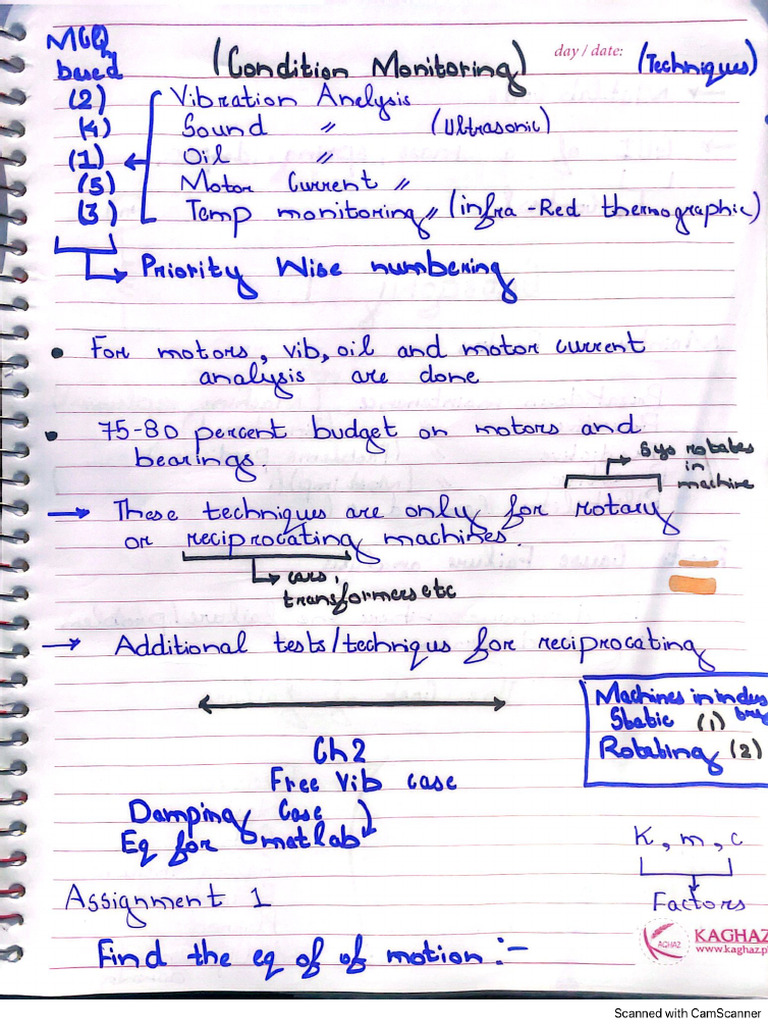 MCQ
based
(Condition Monitoring)
day / date:
(Techniques)
(2) Vibration Analysis
(4) Sound " (Ultrasonic)
(1) Oil "
(5) Motor Current "
(3) Temp monitoring " (infra-Red thermographic)
Priority Wise numbering
• For motors, vib, oil and motor current
analysis are done
• 75-80 percent budget on motors and
bearings.
rotates
in
machine
→ These techniques are only for rotary
or reciprocating machines.
cars,
transformers etc
→ Additional tests/techniqus for reciprocating
Machines in indus
Static (1)
Rotating (2)
Ch2
Free Vib case
Damping Case
Eq for matlab
K, m, c
Factors
Assignment 1
Find the eq of of motion :-
AGHAZ
KAGHAZ
www.kaghaz.p
Scanned with CamScanner